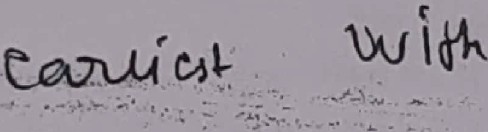 earliest with